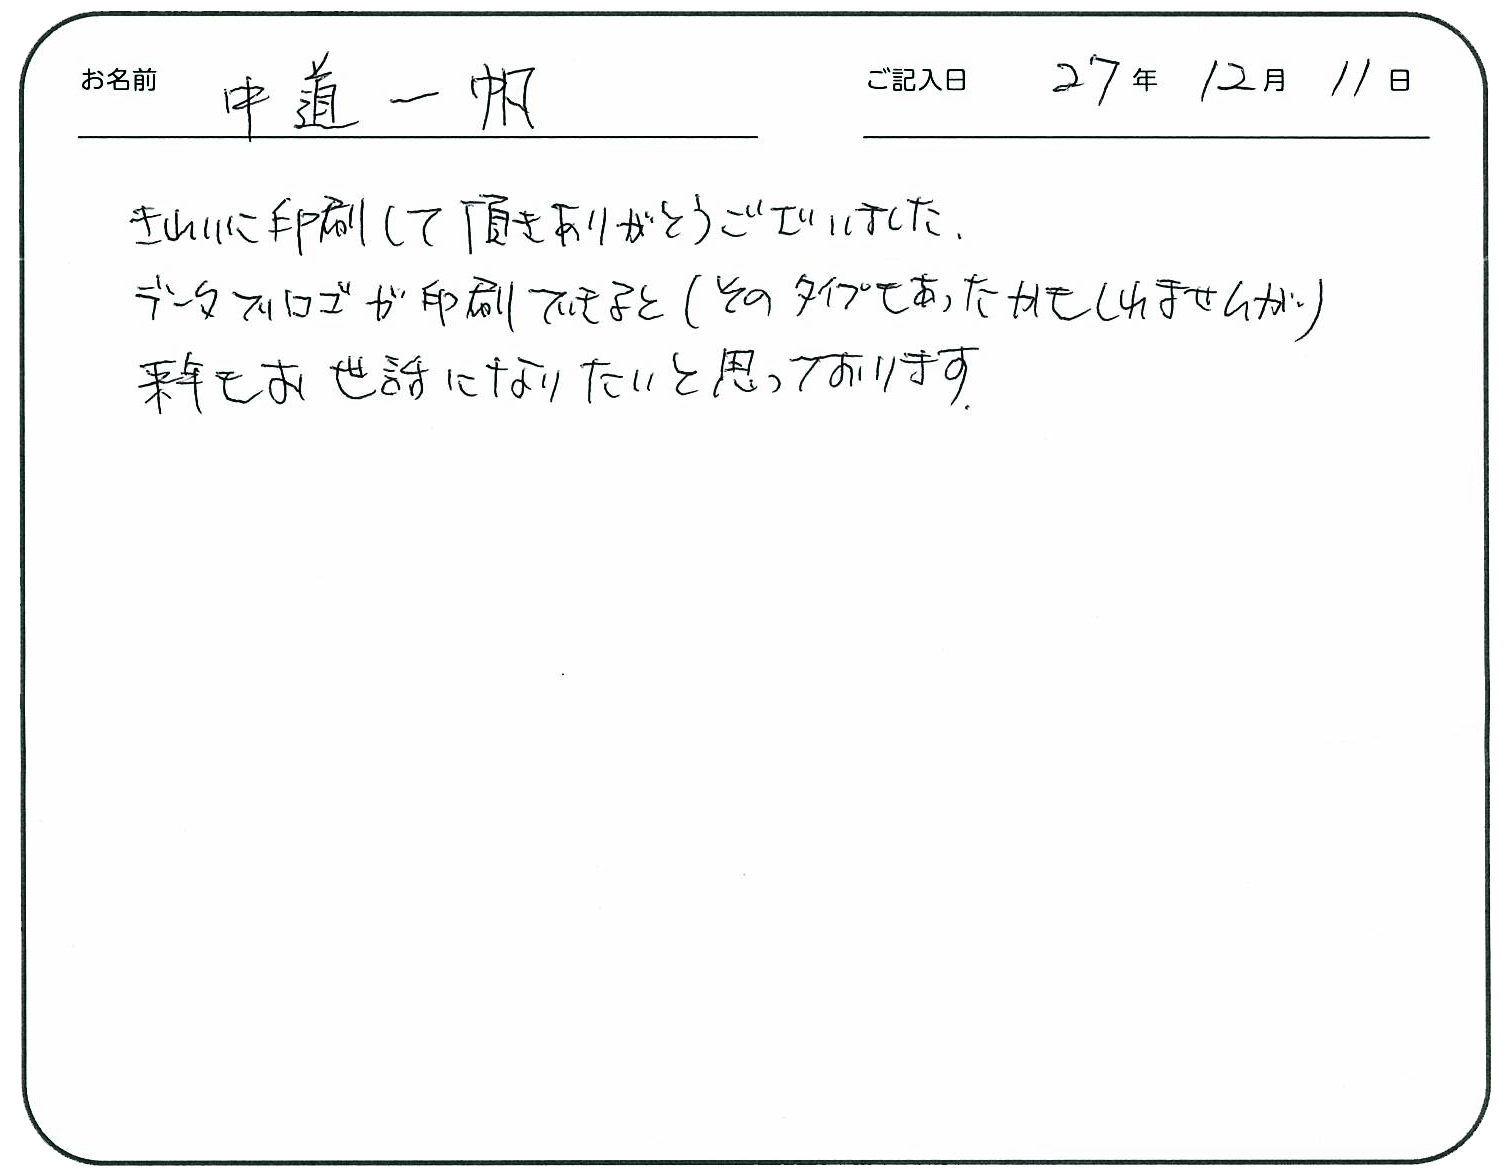 お名前 中道一帆 ご記入日 27年 12月 11日
きれいに印刷して頂きありがとうございました.
データでロゴが印刷できると(そのタイプもあったかもしれませんが)
来年もお世話になりたいと思っております.